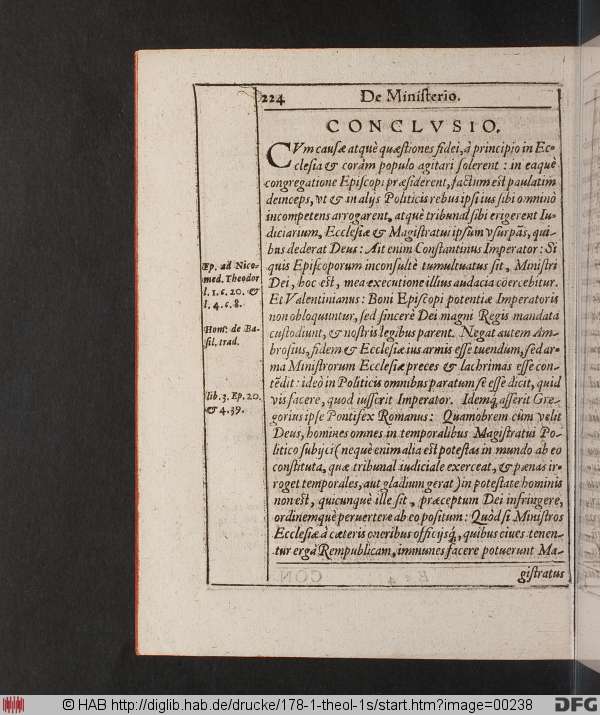 224
De Miniſterio.
CONCLVSIO.
CVm cauſæ atquè quæſtiones fidei, à principio in Ec-
cleſia & coràm populo agitari ſolerent: in eaquè
congregatione Epiſcopi præſiderent, factum eſt paulatim
deinceps, vt & in alijs Politicis rebus ipſi ius ſibi omninò
incompetens arrogarent, atquè tribunal ſibi erigerent Iu-
diciarium, Eccleſiæ & Magiſtratui ipſum vſurpãs, qui-
bus dederat Deus: Ait enim Conſtantinus Imperator: Si
quis Epiſcoporum inconſultè tumultuatus ſit, Miniſtri
Dei, hoc eſt, mea executione illius audacia coërcebitur.
Et Valentinianus: Boni Epiſcopi potentiæ Imperatoris
non obloquuntur, ſed ſincerè Dei magni Regis mandata
cuſtodiunt, & noſtris legibus parent. Negat autem Am-
broſius, fidem & Eccleſiæ ius armis eſſe tuendum, ſed ar-
ma Miniſtrorum Eccleſiæ preces & lachrimas eſſe con-
tẽdit: ideò in Politicis omnibus paratum ſe eſſe dicit, quid
vis facere, quod iuſſerit Imperator. Idemq́; aſſerit Gre-
gorius ipſe Pontifex Romanus: Quamobrem cùm velit
Deus, homines omnes in temporalibus Magiſtratui Po-
litico ſubijci (nequè enim alia eſt poteſtas in mundo ab eo
conſtituta, quæ tribunal iudiciale exerceat, & pænas ir-
roget temporales, aut gladium gerat) in poteſtate hominis
non eſt, quicunquè ille ſit, præceptum Dei infringere,
ordinemquè peruertere ab eo poſitum: Quòd ſi Miniſtros
Eccleſiæ à cæteris oneribus officijsq́;, quibus ciues tenen-
tur ergà Rempublicam, immunes facere potuerunt Ma-
giſtratus
Ep. ad Nico-
med. Theodor
l. 1. c. 20. &
l. 4. c. 8.
Hom: de Ba-
ſil. trad.
lib. 3. Ep. 20.
& 4. 39.
© HAB http://diglib.hab.de/drucke/178-1-theol-1s/start.htm?image=00238
DFG